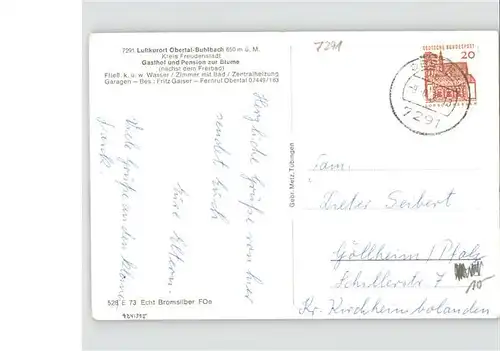 7291 Luftkurort Obertal-Buhlbach 650 m ü. M.
Kreis Freudenstadt
Gasthof und Pension zur Blume
(nächst dem Freibad)
Fließ. k. u. w. Wasser / Zimmer mit Bad / Zentralheizung
Garagen – Bes.: Fritz Gaiser – Fernruf Obertal 07449/163
7291
DEUTSCHE BUNDESPOST
20
7291
Herzliche Grüße von hier
sendet Euch
Eure Eltern.
Viele Grüße an den Kleinen
Gebr. Metz, Tübingen
Fam.
Dieter Seibert
Göllheim / Pfalz
Schillerstr 7
10
Kr. Kirchheimbolanden
528 E 73 Echt Bromsilber FOe